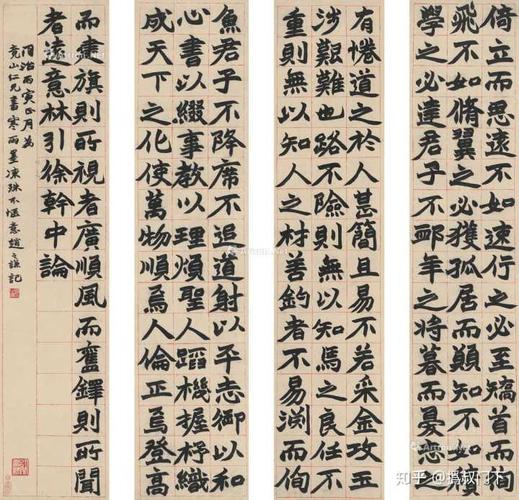 倚立而思遠不如速行之必至矯首而徇
飛不如脩翼之必獲孤居而願知不如務
學之必達君子不卹年之將暮而憂志之
有惓道之於人甚簡且易不若采金攻玉
涉艱難也路不險則無以知馬之良任不
重則無以知人之材善釣者不易淵而徇
魚君子不降席不追道射以平志御以和
心書以綴事教以理煩聖人蹈機握杼織
成天下之化使萬物順焉人倫正焉登高
而建旗則所視者廣順風而奮鐸則所聞
者遠意林引徐幹中論
同治丙寅正月為
竟山仁兄書寒雨墨凍殊不愜意趙之謙記
知乎